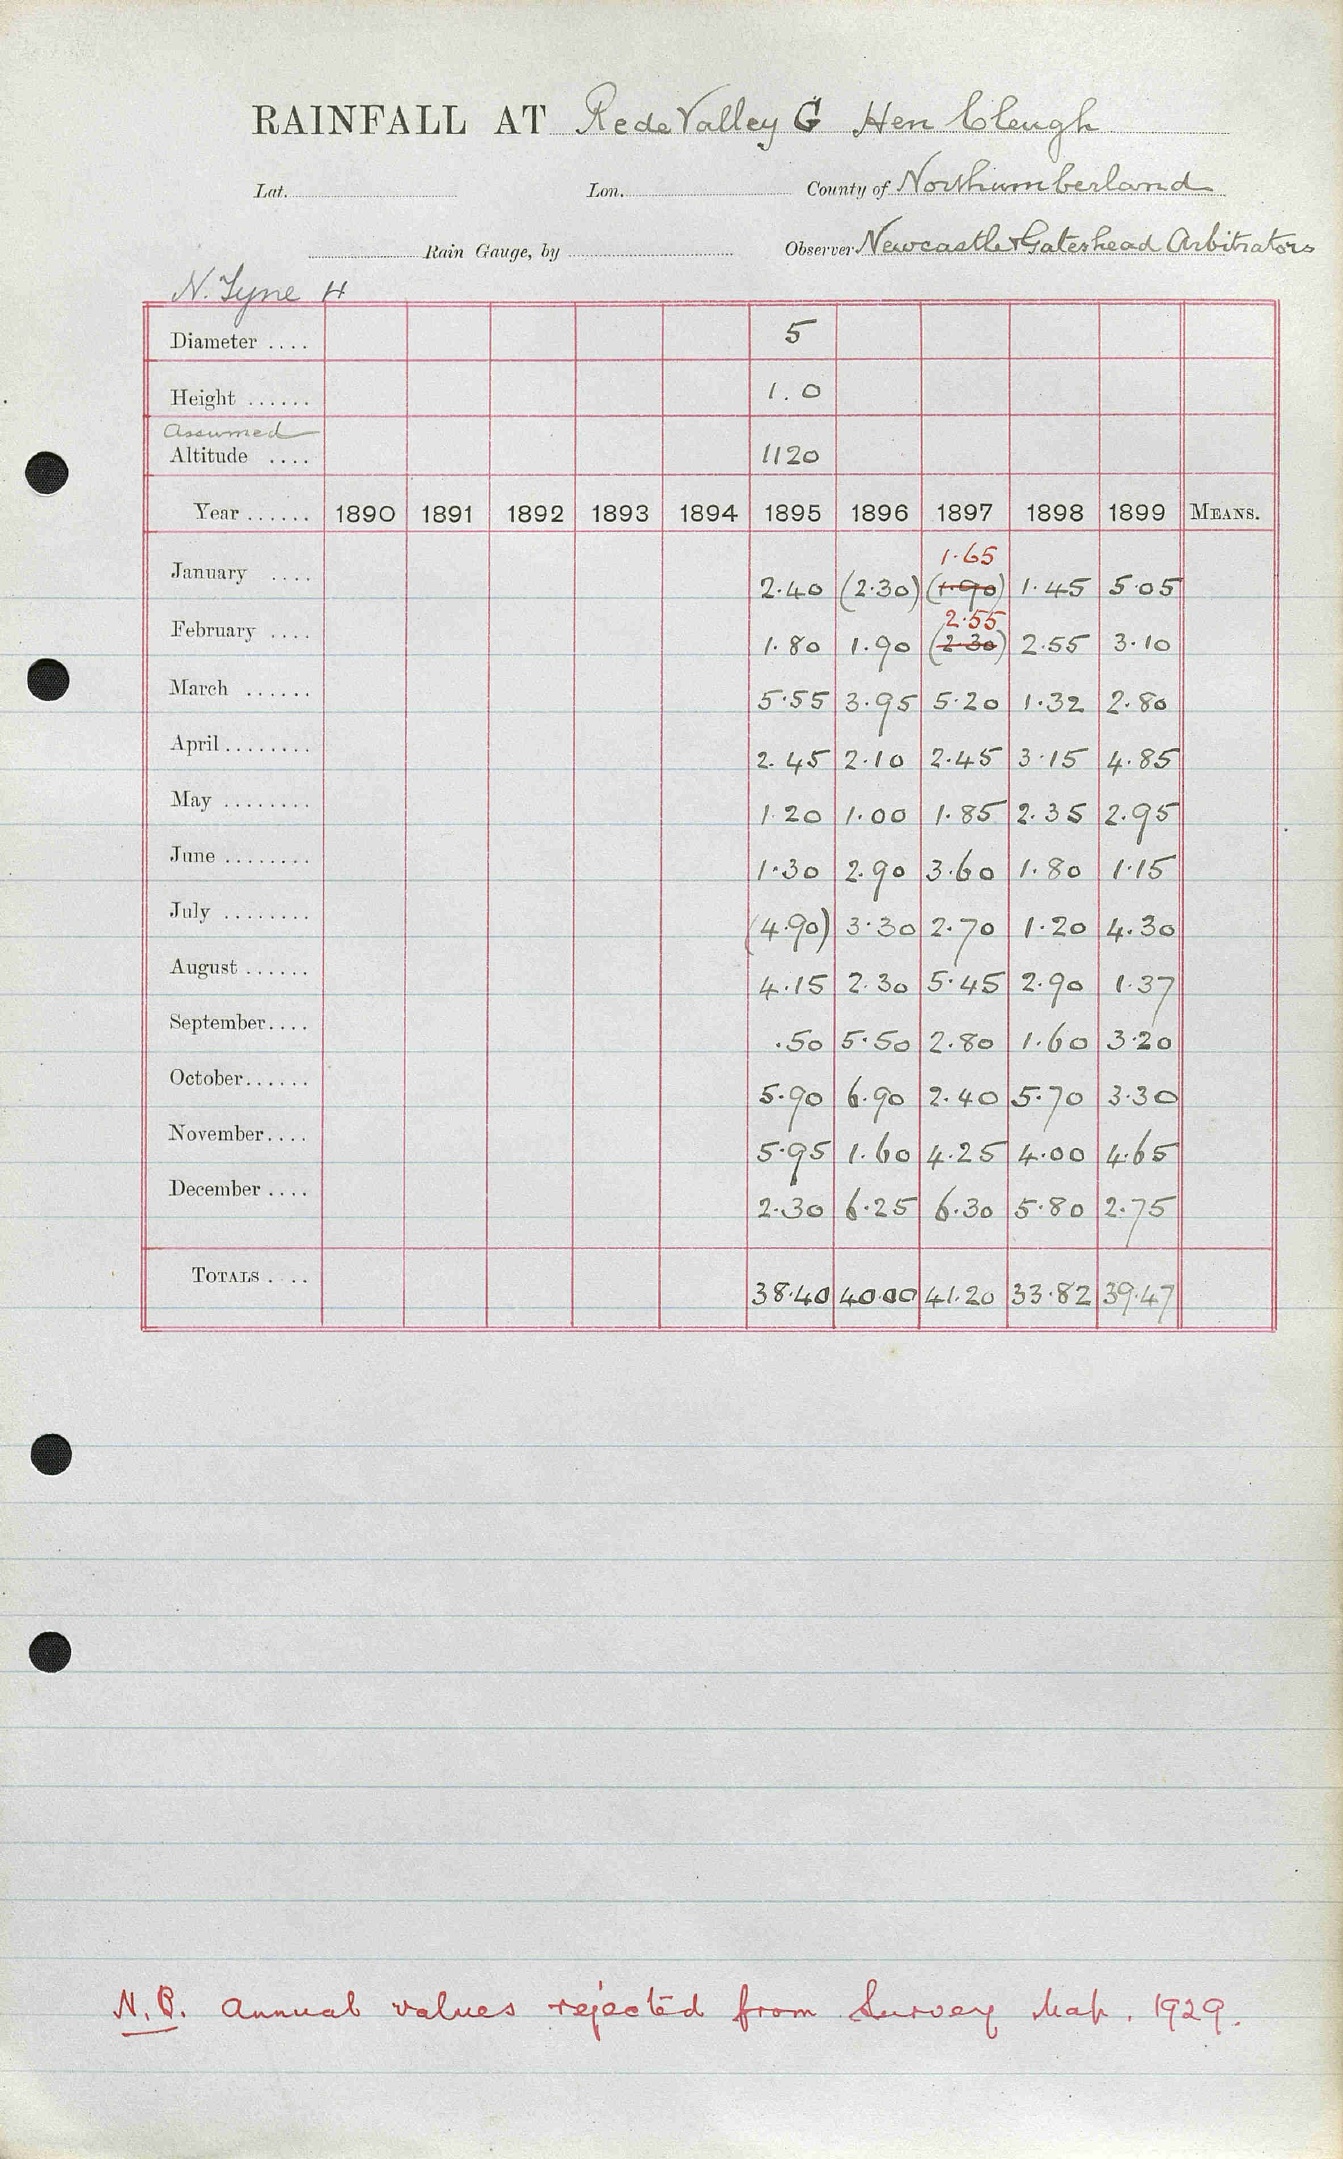 RAINFALL AT Rede Valley G Hen Cleugh
Lat. Lon. County of Northumberland
Rain Gauge, by Observer Newcastle & Gateshead Arbitrators
N. Tyne H
Diameter .... 5
Height ...... 1.0
Assumed
Altitude .... 1120
Year ...... 1890 1891 1892 1893 1894 1895 1896 1897 1898 1899 MEANS.
1.65
January .... 2.40 (2.30) (1.90) 1.45 5.05
2.55
February .... 1.80 1.90 (2.30) 2.55 3.10
March ...... 5.55 3.95 5.20 1.32 2.80
April ........ 2.45 2.10 2.45 3.15 4.85
May ........ 1.20 1.00 1.85 2.35 2.95
June ........ 1.30 2.90 3.60 1.80 1.15
July ........ (4.90) 3.30 2.70 1.20 4.30
August ...... 4.15 2.30 5.45 2.90 1.37
September.... .50 5.50 2.80 1.60 3.20
October...... 5.90 6.90 2.40 5.70 3.30
November.... 5.95 1.60 4.25 4.00 4.65
December .... 2.30 6.25 6.30 5.80 2.75
TOTALS .... 38.40 40.00 41.20 33.82 39.47
N.B. Annual values rejected from Survey Map. 1929.